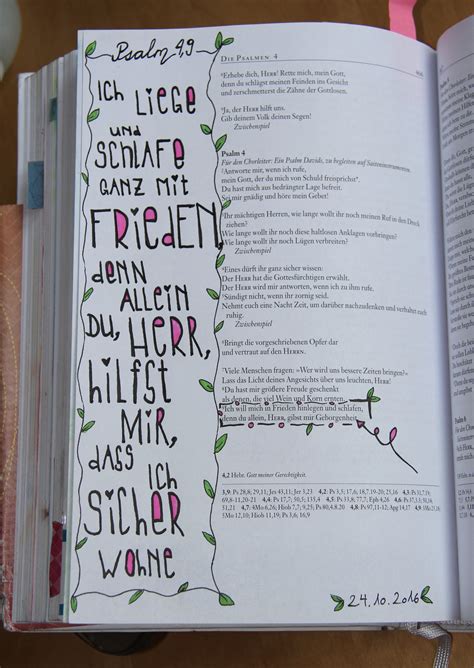 Psalm 4,9
Ich liege
und
schlafe
ganz mit
Frieden,
denn
allein
du, Herr,
hilfst
mir,
dass
ich
sicher
wohne
Die Psalmen 4
⁸Erhebe dich, Herr! Rette mich, mein Gott,
denn du schlägst meinen Feinden ins Gesicht
und zerschmetterst die Zähne der Gottlosen.
⁹Ja, der Herr hilft uns.
Gib deinem Volk deinen Segen!
Zwischenspiel
Psalm 4
Für den Chorleiter: Ein Psalm Davids, zu begleiten auf Saiteninstrumenten.
²Antworte mir, wenn ich rufe,
mein Gott, der du mich von Schuld freisprichst*.
Du hast mich aus bedrängter Lage befreit.
Sei mir gnädig und höre mein Gebet!
³Ihr mächtigen Herren, wie lange wollt ihr noch meinen Ruf in den Dreck
ziehen?
Wie lange wollt ihr noch diese haltlosen Anklagen vorbringen?
Wie lange wollt ihr noch Lügen verbreiten?
Zwischenspiel
⁴Eines dürft ihr ganz sicher wissen:
Der Herr hat die Gottesfürchtigen erwählt.
Der Herr wird mir antworten, wenn ich zu ihm rufe.
⁵Sündigt nicht, wenn ihr zornig seid.
Nehmt euch eine Nacht Zeit, um darüber nachzudenken und verhaltet euch
ruhig.
Zwischenspiel
⁶Bringt die vorgeschriebenen Opfer dar
und vertraut auf den Herrn.
⁷Viele Menschen fragen: »Wer wird uns bessere Zeiten bringen?«
Lass das Licht deines Angesichts über uns leuchten, Herr!
⁸Du hast mir größere Freude geschenkt
als denen, die viel Wein und Korn ernten.
⁹Ich will mich in Frieden hinlegen und schlafen,
denn du allein, Herr, gibst mir Geborgenheit.
4,2 Hebr. Gott meiner Gerechtigkeit.
24.10.2016